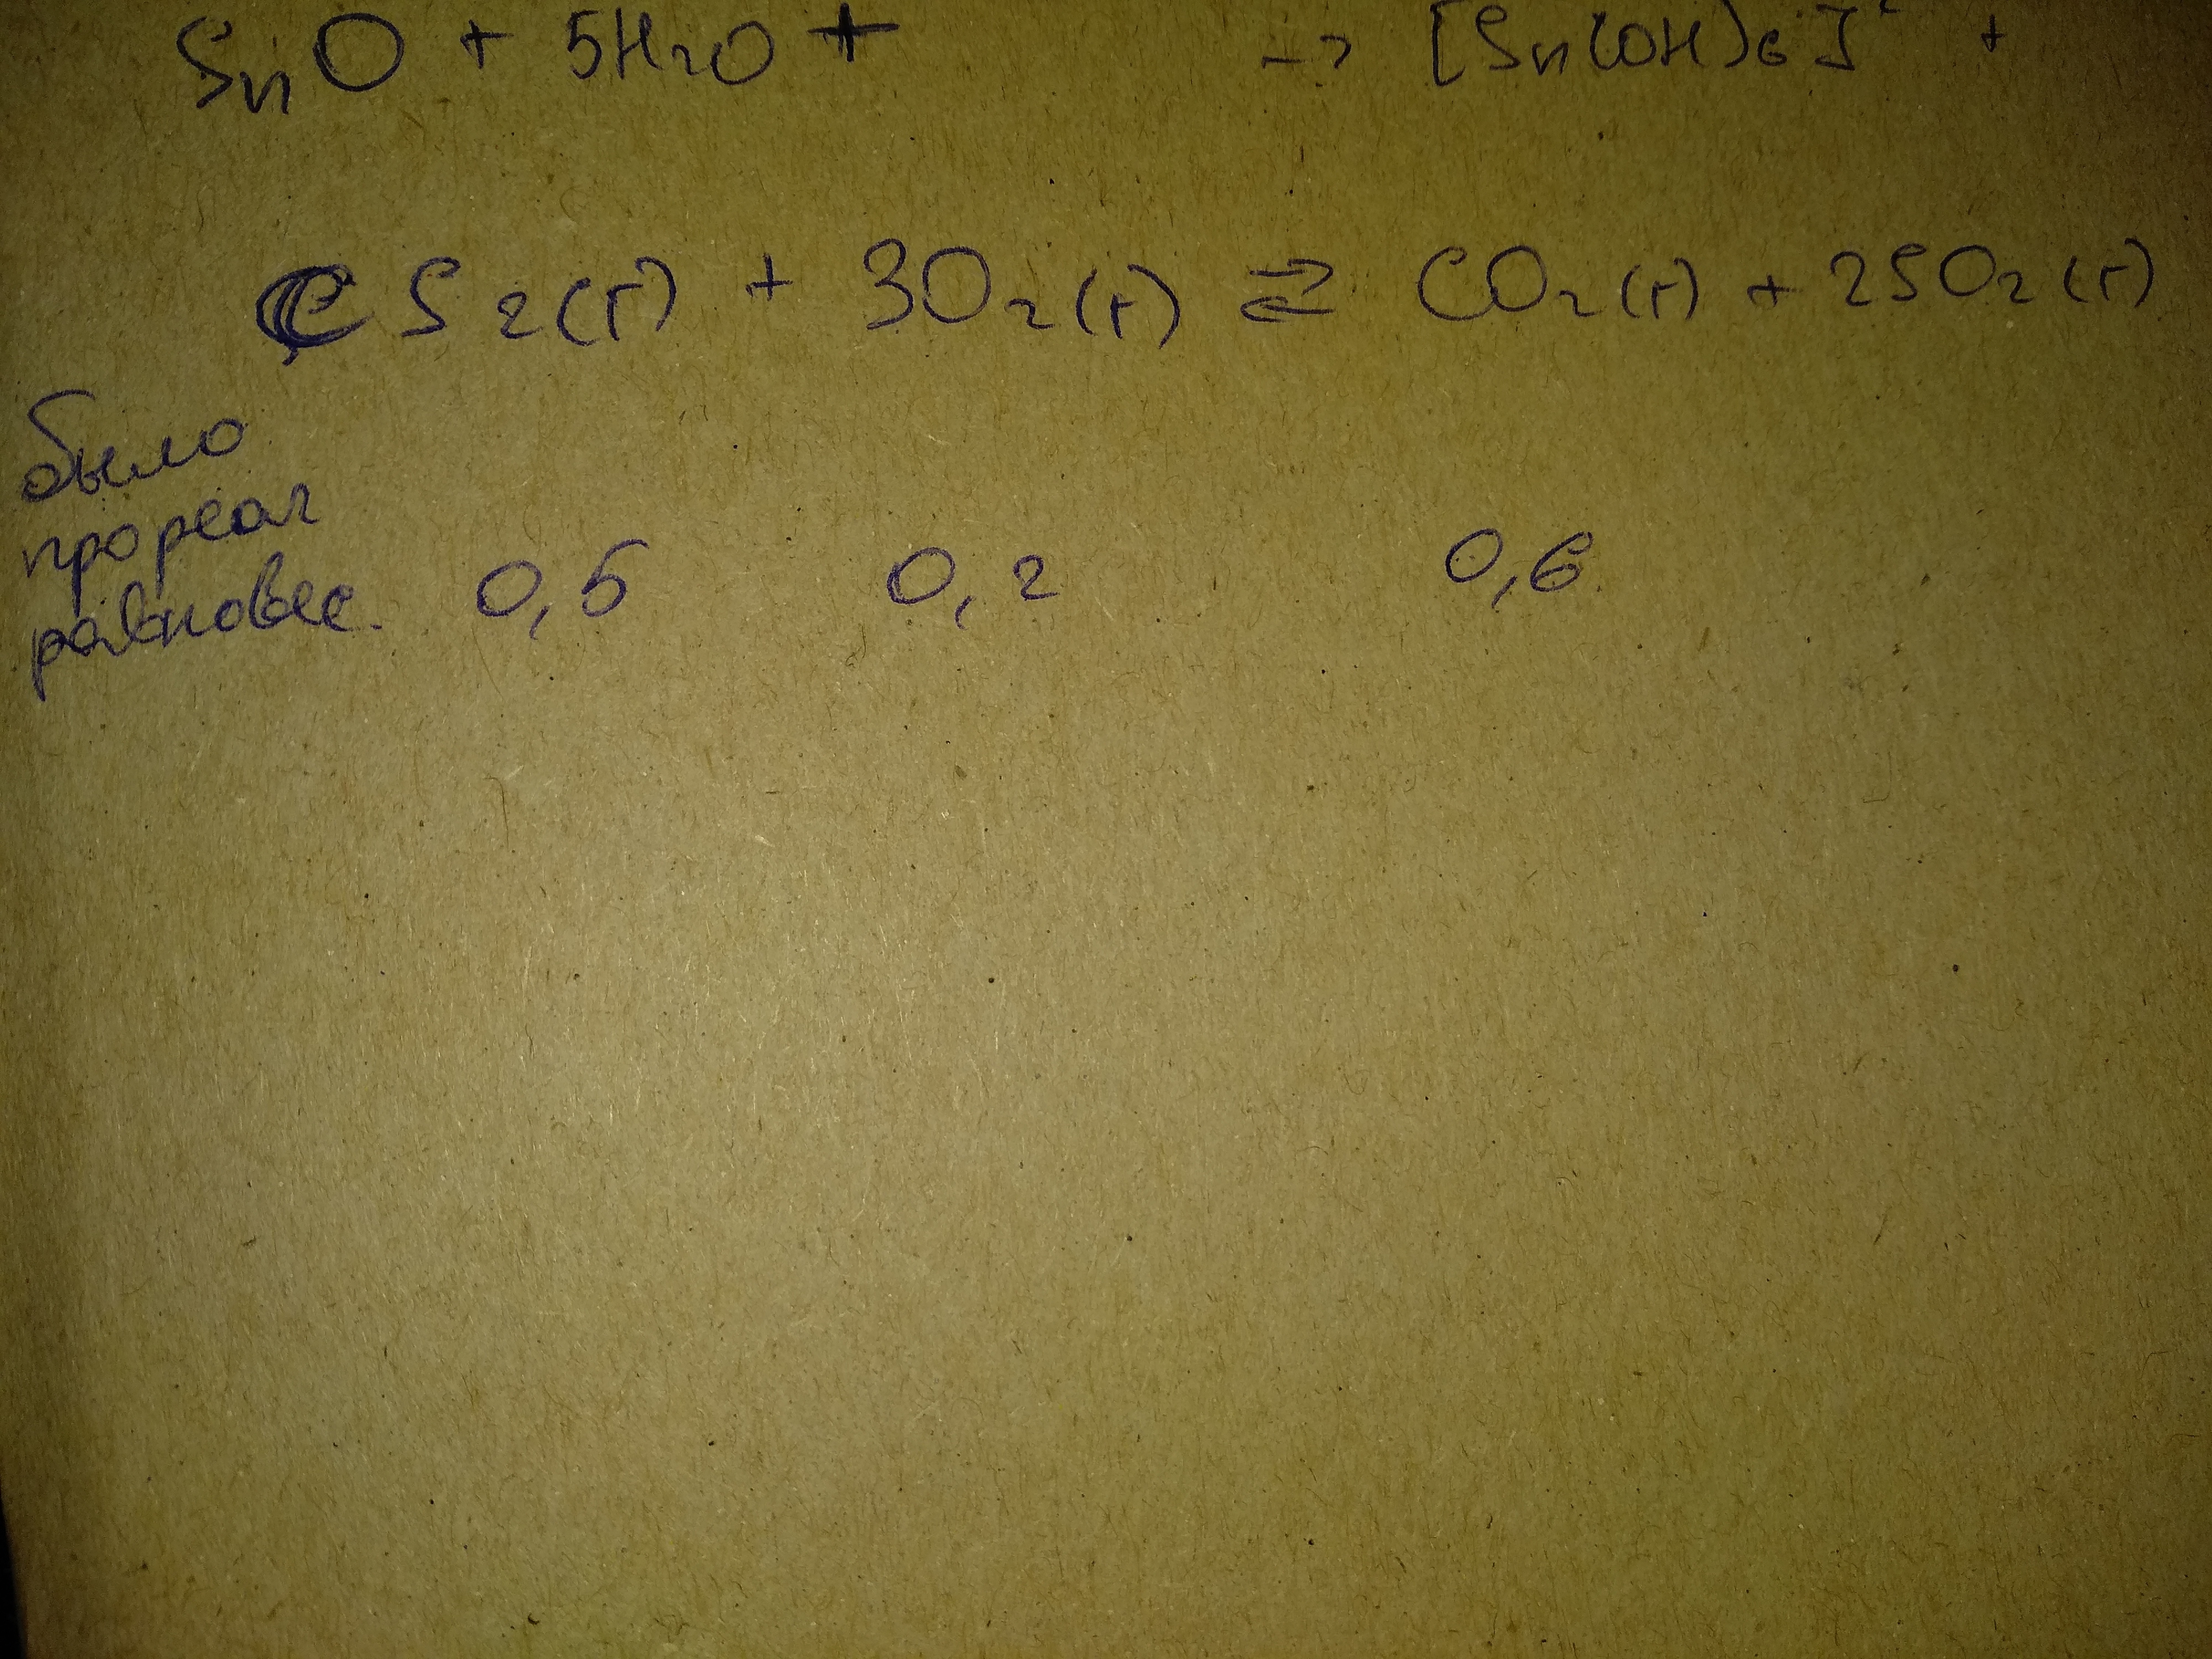 SnO + 5H2O + → [Sn(OH)6]2 +
CS2(г) + 3O2(г) ⇄ CO2(г) + 2SO2(г)
было
прореаг
равновес. 0,5 0,2 0,6